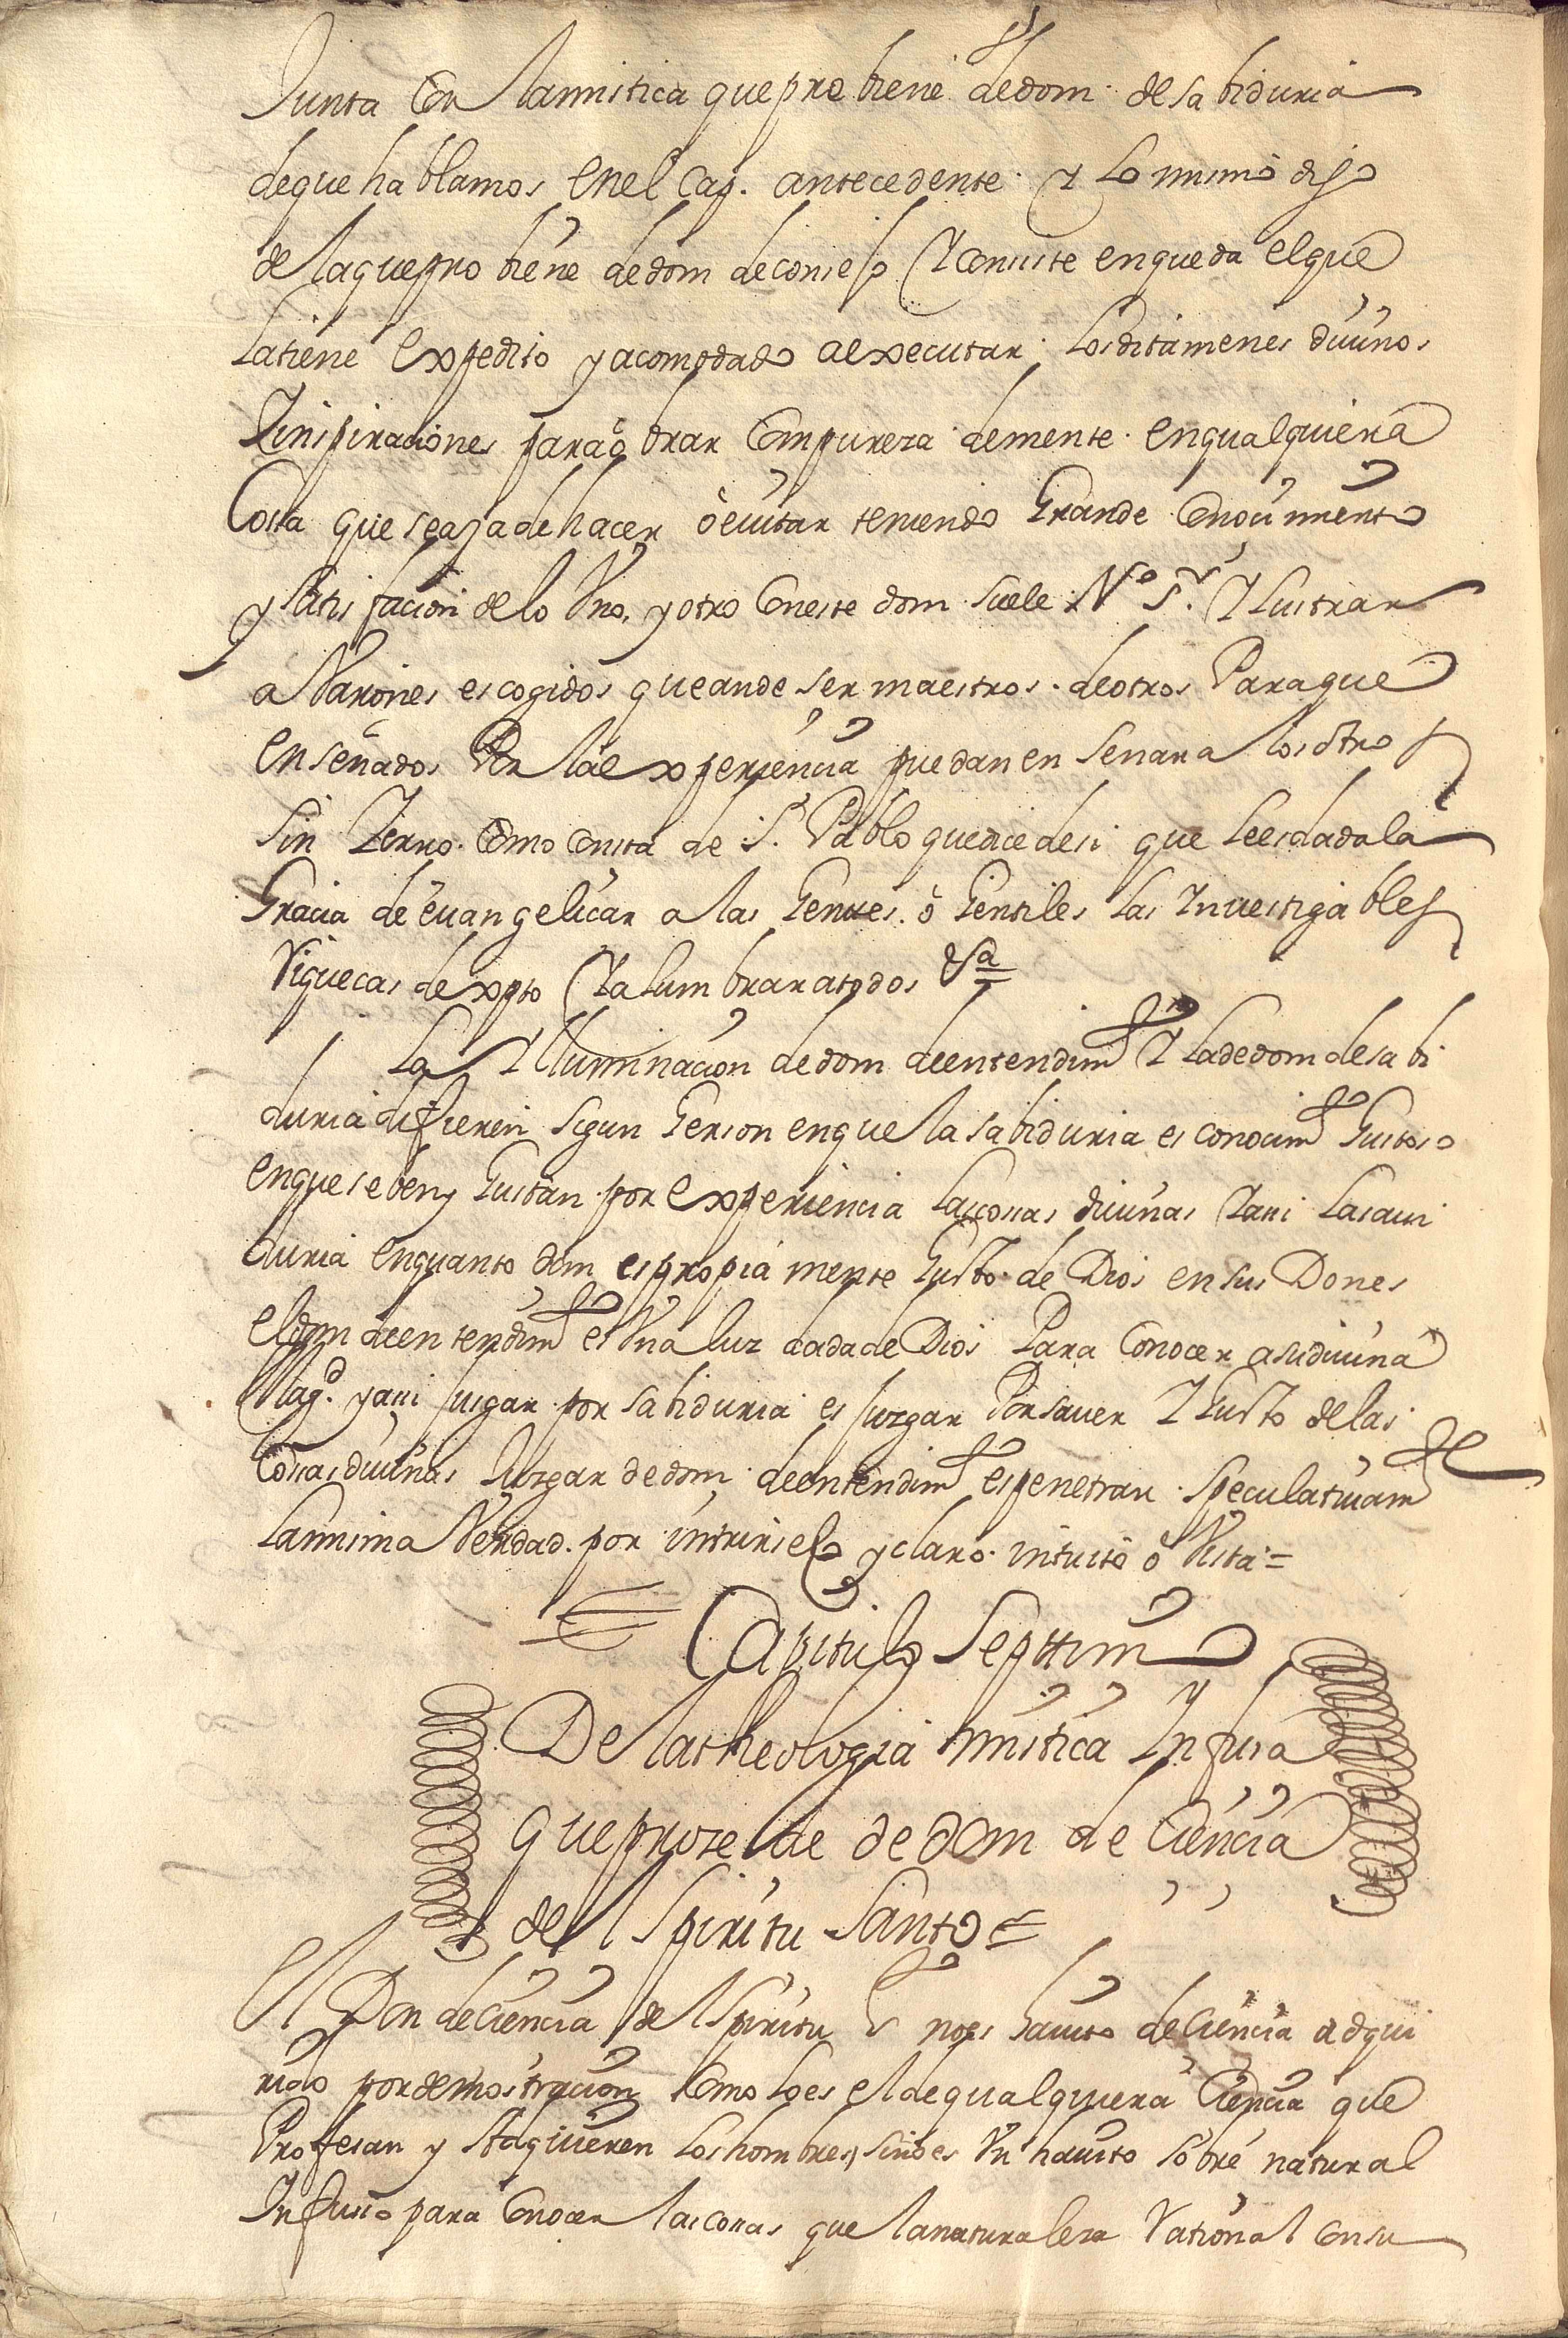 Junta con la mistica que probiene de dom de sabiduria
de que hablamos en el Cap. antecedente. Y lo mismo digo
de la que probiene de dom de consejo Y consiste en que da el que
la tiene expedito y acomodado a executar los ditamenes diuinos
Y inspiraciones para obrar com pureza de mente en qualquiera
Cossa que sea ja de hacer ò euitar teniendo Grande Conocimiento
y satisfacion de lo Vno, y otro Con este dom suele N.º S.r Ylustrar
a Varones escogidos que ande ser maestros de otros Para que
enseñados Por la experiencia puedan ensenar a los otros
sin Yerro. Como Consta de S. Pablo que dice de si que le es dada la
Gracia de euangelicar a las Gentes ò Gentiles las Inuestigables
Riquecas de xpto Y alumbrar a todos &a
La Illuminacion de dom de entendim.to Y la de dom de sabi
duria difieren segun Gerson en que la sabiduria es conocim.to Gustoso
en que se ben y Gustan por experiencia las cossas diuinas Y assi la saui
duria en quanto dom es propia mente Gusto de Dios en sus Dones
el dom de entendim.to es Vna luz dada de Dios Para Conocer a su diuina
Mag.d y assi jusgar por sabiduria es juzgar Por sauer Y Gusto de las
Cossas diuinas Juzgar de dom de entendim.to es penetrar speculatiuam.te
la misma Verdad por intrinseco y claro intuito ò Vista =
Capitulo Septtimo
De la theologia mistica Infusa
que prozede de dom de Ciencia
del Spiritu Santo =
El Don de Ciencia del Spiritu S.to no es hauito de Ciencia adqui
rido por demostracion Como lo es el de qualquiera Ciencia que
Profesan y Adquieren los hombres, sino es Vn hauito sobre natural
Infusso para Conocer las cossas que la naturalesa Rational con su